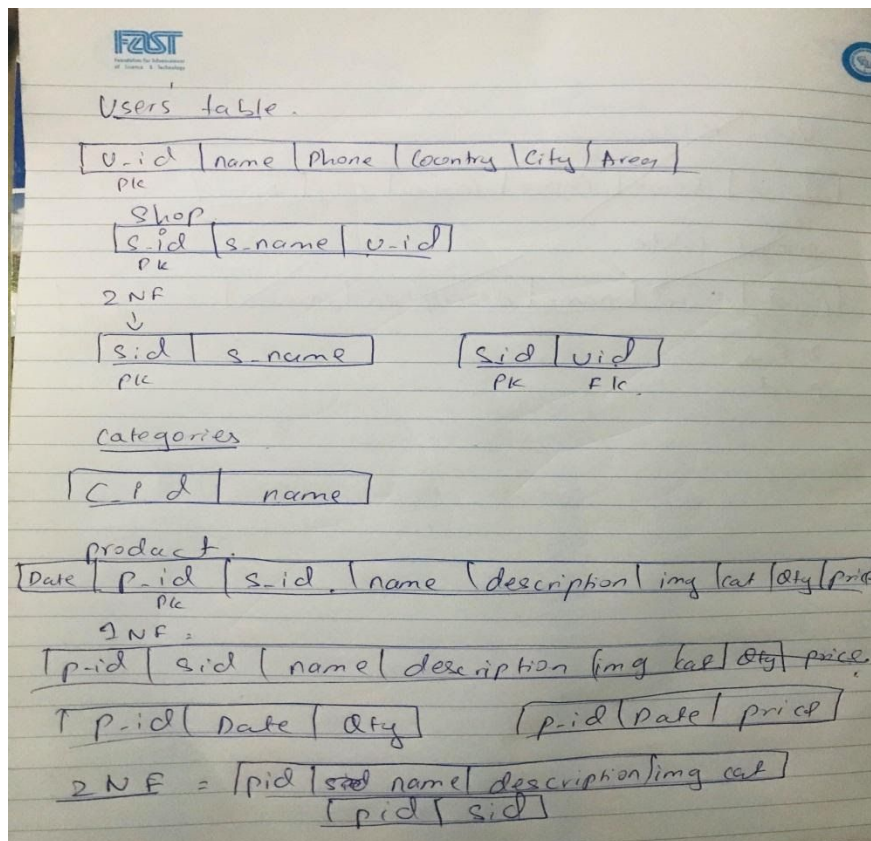 FAST
Foundation for Advancement
of Science & Technology
Users' table.
U-id | name | Phone | Country | City | Area
PK
Shop
S-id | S-name | U-id
PK
2 NF
↓
Sid | S-name Sid | Uid
PK PK FK
Categories
C-id | name
product.
Date | P-id | S-id. | name | description | img | cat | Qty | price
PK
1NF:
P-id | Sid | name | description | img cat | Qty | price
P-id | Date | Qty P-id | Date | price
2NF = pid | sid name | description | img cat
pid | sid